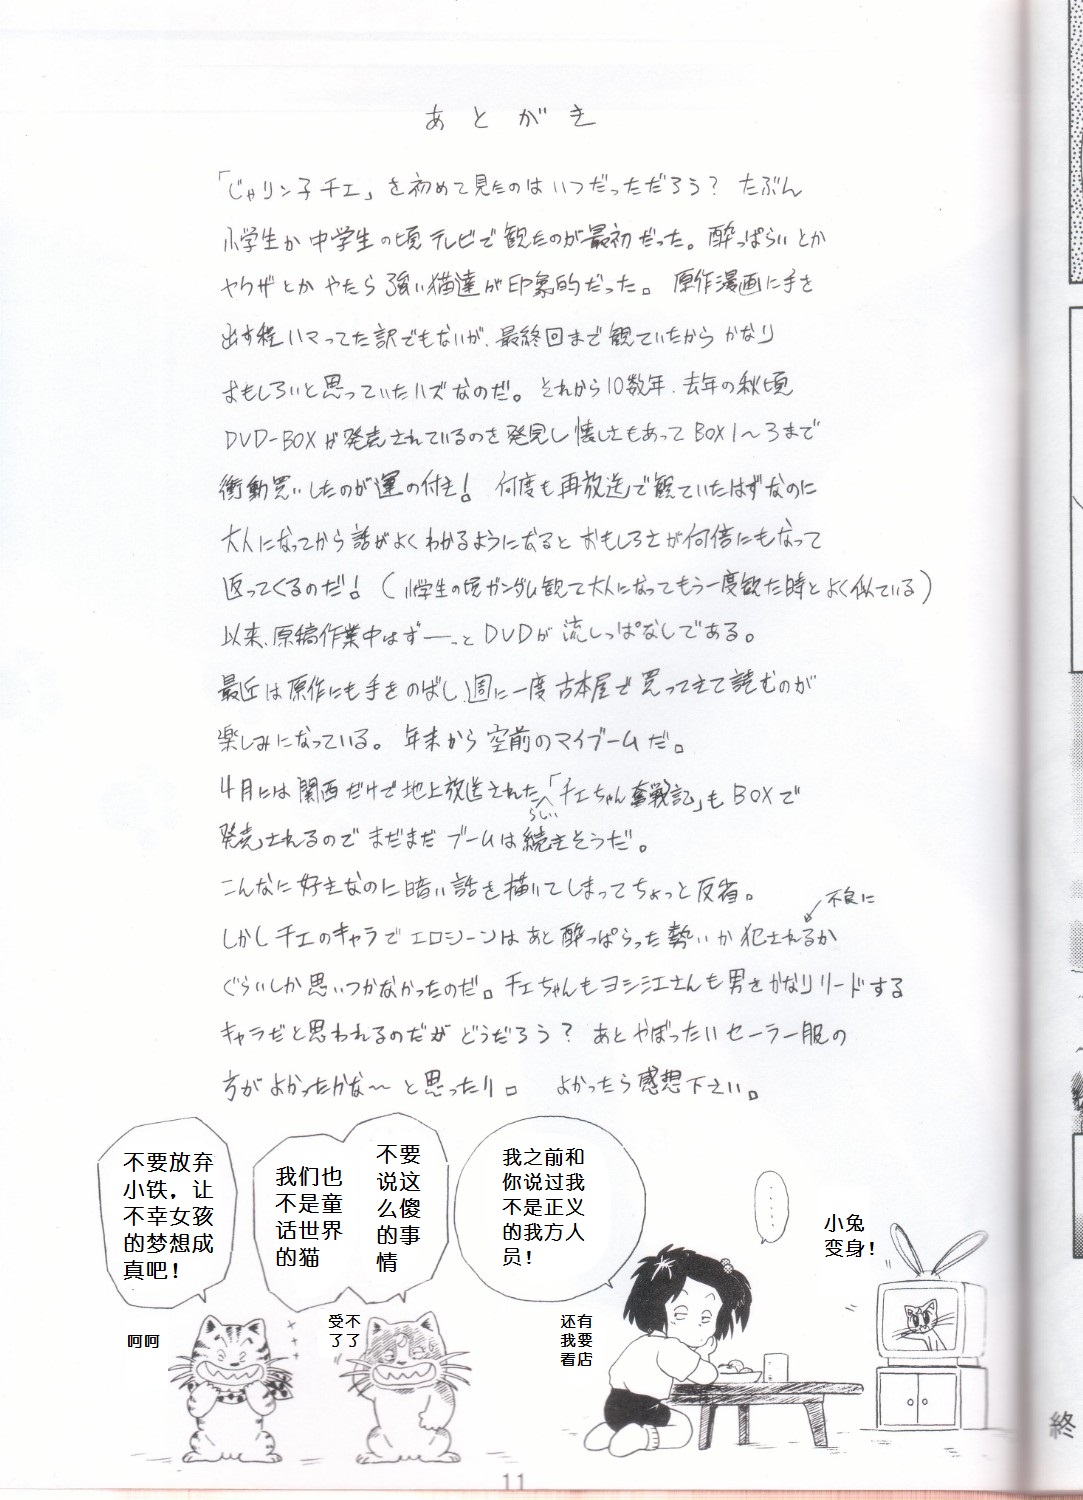 あとがき
「じゃリン子チエ」を初めて見たのはいつだっただろう？ たぶん
小学生か中学生の頃テレビで観たのが最初だった。酔っぱらいとか
ヤクザとかやたら強い猫達が印象的だった。原作漫画に手を
出す程ハマってた訳でもないが、最終回まで観ていたからかなり
おもしろいと思っていたハズなのだ。それから10数年、去年の秋頃
DVD-BOXが発売されているのを発見し懐しさもあってBOX1〜3まで
衝動買いしたのが運の付き！ 何度も再放送で観ていたはずなのに
大人になってから話がよくわかるようになるとおもしろさが何倍にもなって
返ってくるのだ！（小学生の頃ガンダム観て大人になってもう一度観た時とよく似ている）
以来、原稿作業中はずーーっとDVDが流しっぱなしである。
最近は原作にも手をのばし、週に一度古本屋で買ってきて読むのが
楽しみになっている。年末から空前のマイブームだ。
4月には関西だけで地上放送されたらしい「チエちゃん奮戦記」もBOXで
発売されるのでまだまだブームは続きそうだ。
こんなに好きなのに暗い話を描いてしまってちょっと反省。
不良に
しかしチエのキャラでエロシーンはあと酔っぱらった勢いか犯されるか
ぐらいしか思いつかなかったのだ。チエちゃんもヨシ江さんも男をかなりリードする
キャラだと思われるのだがどうだろう？ あとやぼったいセーラー服の
方がよかったかな〜と思ったり。 よかったら感想下さい。
不要放弃
小铁，让
不幸女孩
的梦想成
真吧！
我们也
不是童
话世界
的猫
不要
说这
么傻
的事
情
我之前和
你说过我
不是正义
的我方人
员！
……
小兔
变身！
呵呵
受不
了了
还有
我要
看店
11
終